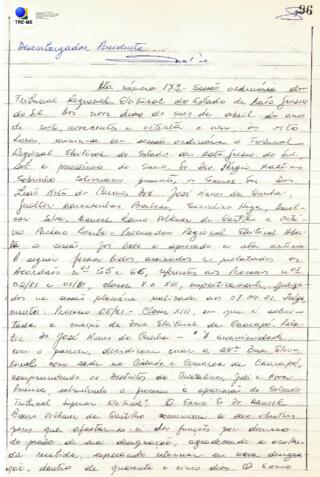 TRE-MS
96
Desembargador Presidente
Ata número 173 - Sessão ordinária do
Tribunal Regional Eleitoral do Estado de Mato Grosso
do Sul. Aos nove dias do mês de abril do ano
de mil novecentos e oitenta e um, às oito
horas, reuniu-se em sessão ordinária o Tribunal
Regional Eleitoral do Estado de Mato Grosso do Sul,
sob a presidência do Exmo Sr. Des. Sérgio Martins
Sobrinho
Leão Neto do Carmo, Drs. José Nunes da Cunha,
Silva, Manoel Ramo Volkner de Castilho e
Pacheco - Procurador Regional Eleitoral.
a sessão, foi lida e aprovada a ata anterior.
A seguir foram lidos, assinados e publicados os
Acórdãos nºs 155 e 156, referentes aos Processos nºs
02/81 e 01/81, classes V e XIII, respectivamente, julga-
dos na sessão plenária realizada aos 07.04.81. Julga-
mento: Processo 05/81 - Classe XIII, em que é
a criação de Zona Eleitoral de Camapuã. Rela-
tor Dr. José Nunes da Cunha - "À unanimidade,
com o parecer, decidiram criar a 28ª Zona Elei-
toral com sede na Cidade e Comarca de Camapuã,
compreendendo os Distritos de
submetendo o processo à apreciação do Colendo
Tribunal Superior Eleitoral". O Exmo Sr. Dr. Manoel
Ramo Volkner de Castilho comunicou a seus ilustres
pares que afastar-se-á das funções por decurso
do prazo de sua designação, agradecendo a acolhi-
da recebida, esperando retornar em nova designa-
ção, dentro de quarenta e cinco dias. O Exmo